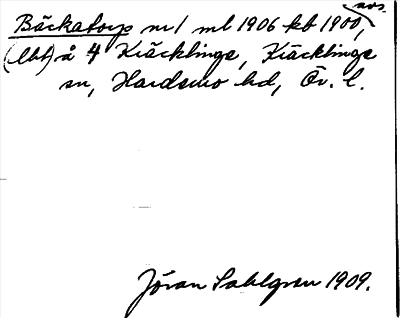 avs.
Bäckatorp nr 1 ml 1906 kb 1900,
(lht) å 4 Kräcklinge, Kräcklinge
sn, Hardemo hd, Ör. l.
Jöran Sahlgren 1909.